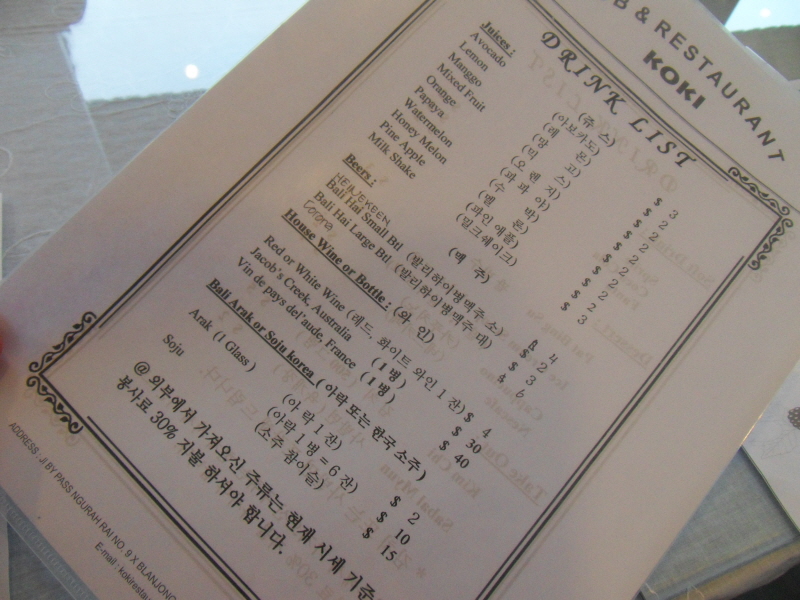 B & RESTAURANT
KOKI
DRINK LIST
Juices : (쥬 스)
Avocado (아보카도) $ 3
Lemon (레 몬) $ 2
Manggo (망 고) $ 2
Mixed Fruit (믹 스) $ 2
Orange (오 렌 지) $ 2
Papaya (파 파 야) $ 2
Watermelon (수 박) $ 2
Honey Melon (멜 론) $ 2
Pine Apple (파인 애플) $ 2
Milk Shake (밀크쉐이크) $ 3
Beers : (맥 주)
HEINEKEEN $ 4
Bali Hai Small Btl (발리하이병맥주 소) $ 2
Bali Hai Large Btl (발리하이병맥주 대) $ 3
Corona $ 6
House Wine or Bottle : (와 인)
Red or White Wine (레드, 화이트 와인 1 잔) $ 4
Jacob's Creek, Australia (1 병) $ 30
Vin de pays del'aude, France (1 병) $ 40
Bali Arak or Soju korea (아락 또는 한국 소주)
Arak (1 Glass) (아 락 1 잔) $ 2
(아락 1 병 = 6 잔) $ 10
Soju (소주 참이슬) $ 15
@ 외부에서 가져오신 주류는 현재 시세 기준
봉사료 30% 지불 하셔야 합니다.
ADDRESS : Jl BY PASS NGURAH RAI NO. 9 X BLANJONG
E-mail : kokiresta